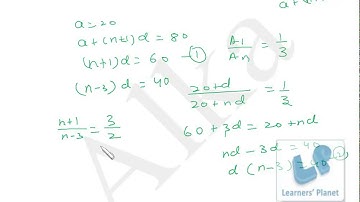 a=20
a+(n+1)d = 80
(n+1)d = 60 - ①
(n-3)d = 40
n+1/n-3 = 3/2
A1/An = 1/3
20+d/20+nd = 1/3
60+3d = 20+nd
nd-3d = 40
d(n-3) = 40 ②
Alka
LP
Learners' Planet